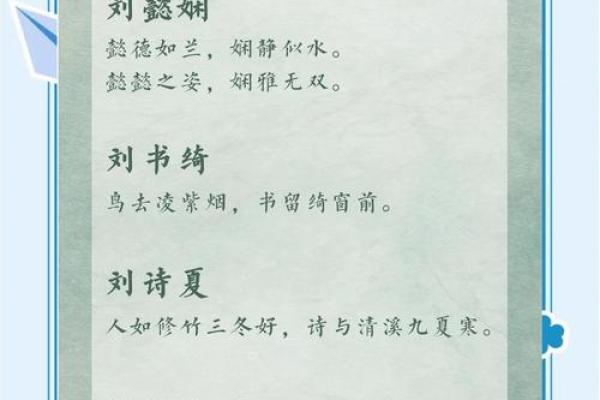 刘懿娴
懿德如兰，娴静似水。
懿懿之姿，娴雅无双。
刘书绮
鸟去凌紫烟，书留绮窗前。
刘诗夏
人如修竹三冬好，诗与清溪九夏寒。